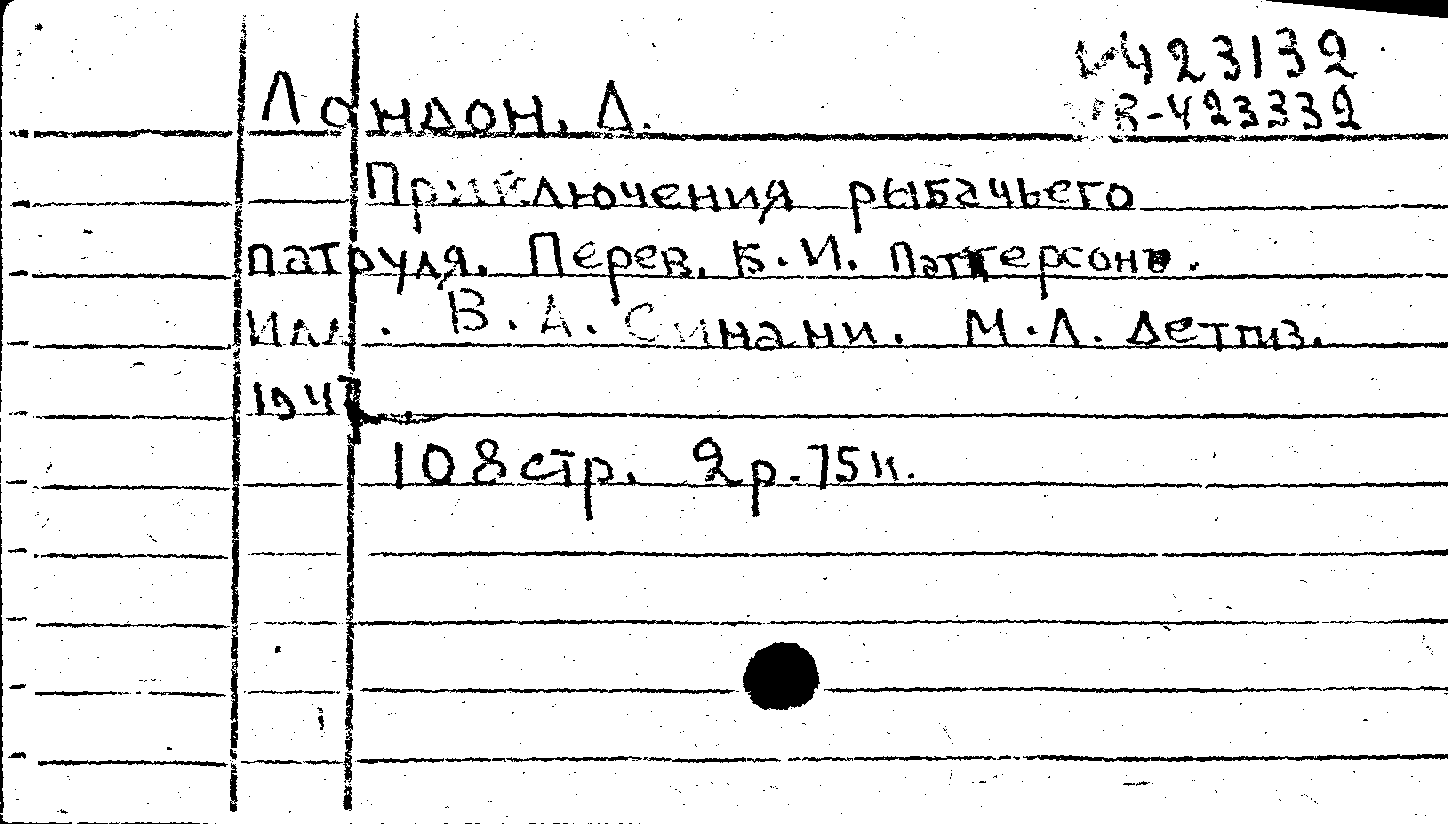 423132
Лондон, Д.
В-423332
Приключения рыбачьего
патруля. Перев. К.И. Паттерсона.
Илл. В.А. Синани. М.Л. Детгиз.
1947
108 стр. 2р.75к.